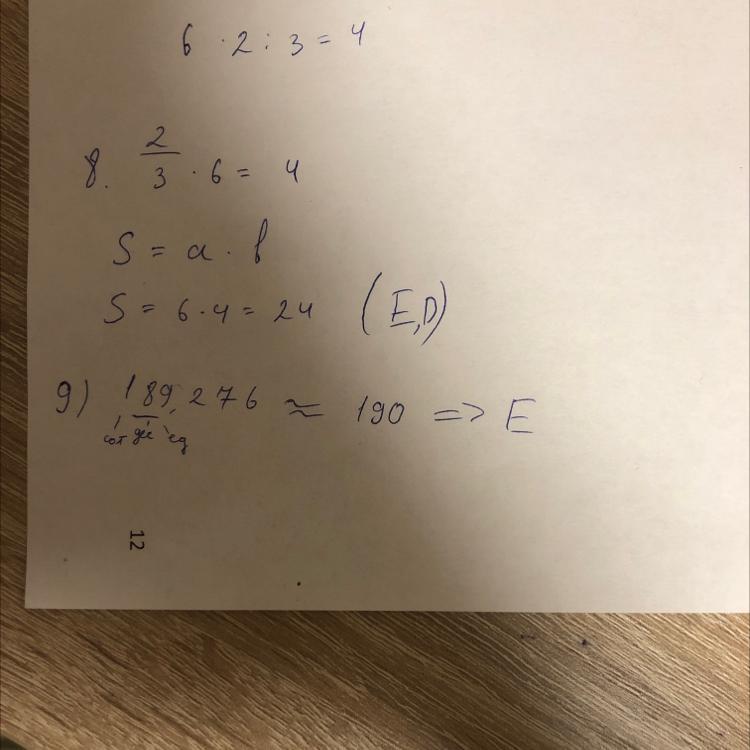 6 · 2 : 3 = 4
8. 2/3 · 6 = 4
S = a · b
S = 6 · 4 = 24 (E, D)
9) 189,276 ≈ 190 => E
сот дес ед
12